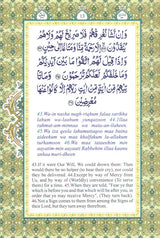 وَإِن نَّشَأْ نُغْرِقْهُمْ فَلَا صَرِيخَ لَهُمْ وَلَا هُمْ
يُنقَذُونَ ﴿٤٣﴾ إِلَّا رَحْمَةً مِّنَّا وَمَتَاعًا إِلَىٰ حِينٍ ﴿٤٤﴾
وَإِذَا قِيلَ لَهُمُ اتَّقُوا مَا بَيْنَ أَيْدِيكُمْ
وَمَا خَلْفَكُمْ لَعَلَّكُمْ تُرْحَمُونَ ﴿٤٥﴾ وَمَا
تَأْتِيهِم مِّنْ آيَةٍ مِّنْ آيَاتِ رَبِّهِمْ إِلَّا كَانُوا عَنْهَا
مُعْرِضِينَ ﴿٤٦﴾
43.Wa-in nasha nugh-riqhum falaa sareekha
lahum wa-laahum yunqazoon 44.Illaa
rahmat-am-minnaa wa mataa-an-ilaheen.
45.Wa iza qeela lahumuttaqoo maa baina
aideekum wa maa khalfakum la-allakum
turhamoon 46.Wa maa taateehim min
aayatim-min aayaati Rabbihim illaa kaanu
anhaa muri-dheen
43.If it were Our Will, We could drown them: Then
would there be no helper (to hear their cry), nor could
they be delivered, 44.Except by way of Mercy from
Us, and by way of (Worldly) convenience (To serve
them) for a time. 45.When they are told, "Fear ye that
which is before you and that which will be after you, in
order that ye may receive Mercy," (They turn back).
46.Not a Sign comes to them from among the Signs of
their Lord, but they turn away therefrom.